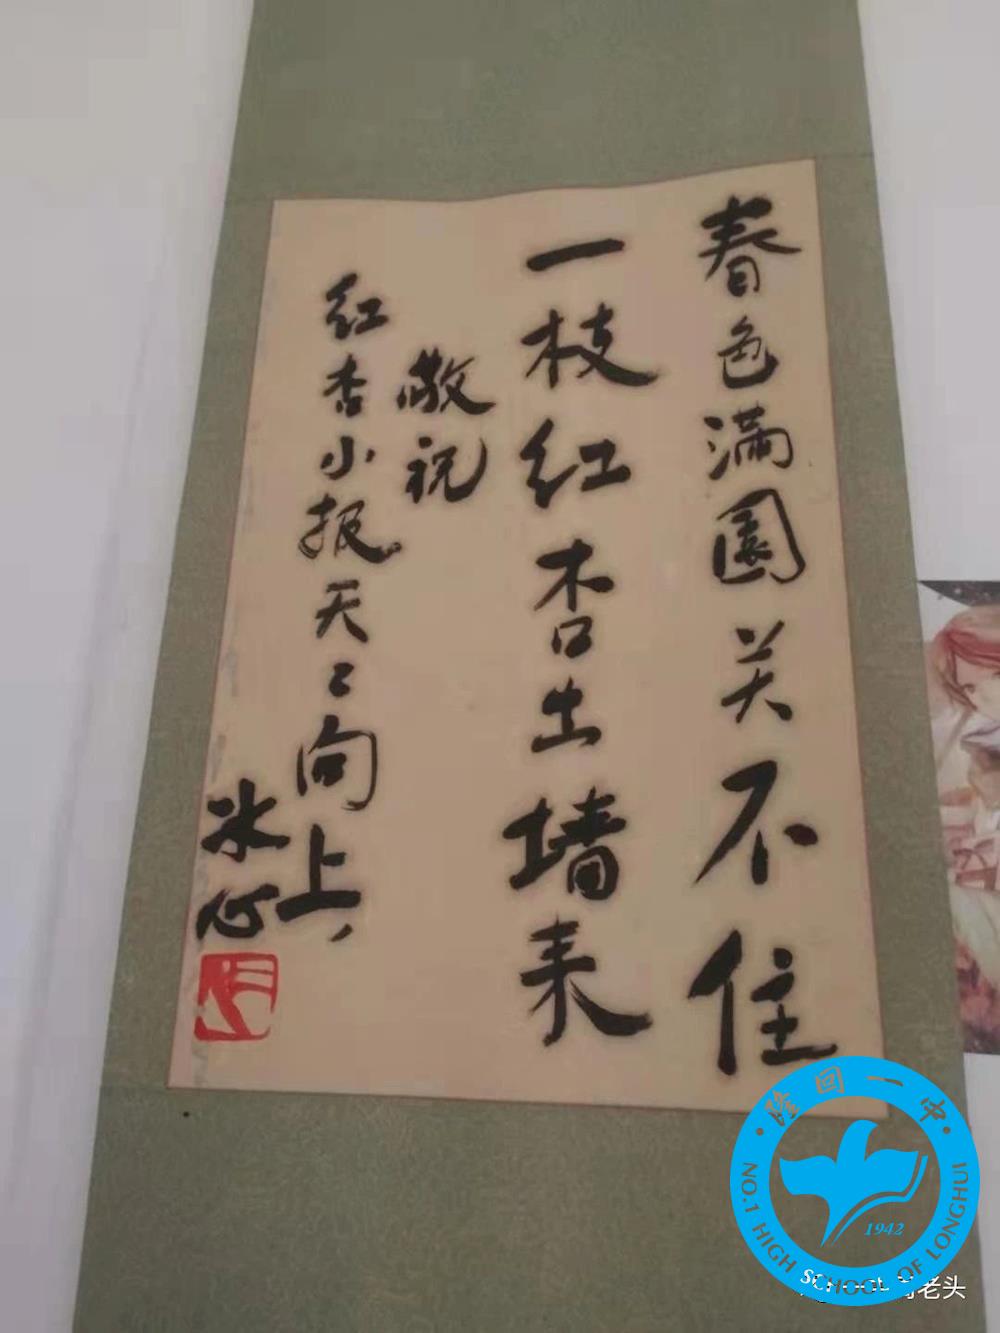 春色满園关不住
一枝红杏出墙来
敬祝
红杏小报天〻向上，
冰心
隆回一中
NO.1 HIGH SCHOOL OF LONGHUI
1942
老头